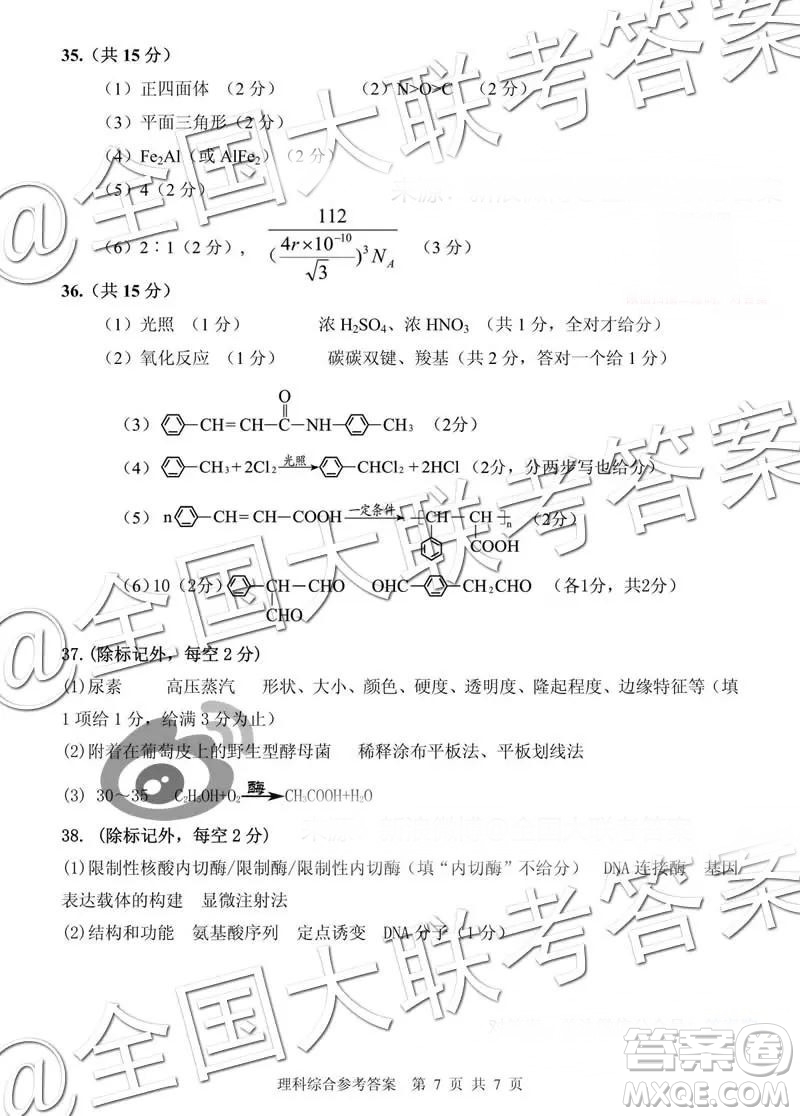 35.（共 15 分）
（1）正四面体 （2 分） （2）N>O>C （2 分）
（3）平面三角形（2 分）
（4）Fe₂Al（或 AlFe₂）（2 分）
（5）4（2 分）
（6）2∶1（2 分）， 112 / ((4r×10⁻¹⁰ / √3)³ N_A) （3 分）
36.（共 15 分）
（1）光照 （1 分） 浓 H₂SO₄、浓 HNO₃ （共 1 分，全对才给分）
（2）氧化反应 （1 分） 碳碳双键、羧基（共 2 分，答对一个给 1 分）
O
（3） CH=CH C NH CH₃ （2分）
（4） CH₃+2Cl₂ 光照 CHCl₂+2HCl（2分，分两步写也给分）
（5） n CH=CH COOH 一定条件 CH CH n （2分）
COOH
（6）10（2分） CH CHO OHC CH₂CHO （各1分，共2分）
CHO
37.(除标记外，每空 2 分)
(1)尿素 高压蒸汽 形状、大小、颜色、硬度、透明度、隆起程度、边缘特征等（填
1 项给 1 分，给满 3 分为止）
(2)附着在葡萄皮上的野生型酵母菌 稀释涂布平板法、平板划线法
(3) 30～35 C₂H₅OH+O₂ 酶 CH₃COOH+H₂O
38. (除标记外，每空 2 分)
(1)限制性核酸内切酶/限制酶/限制性内切酶（填“内切酶”不给分） DNA 连接酶 基因
表达载体的构建 显微注射法
(2)结构和功能 氨基酸序列 定点诱变 DNA 分子（1 分）
理科综合参考答案 第 7 页 共 7 页
@全国大联考答案
@全国大联考答案
@全国大联考答案
答案卷
MXQE.COM